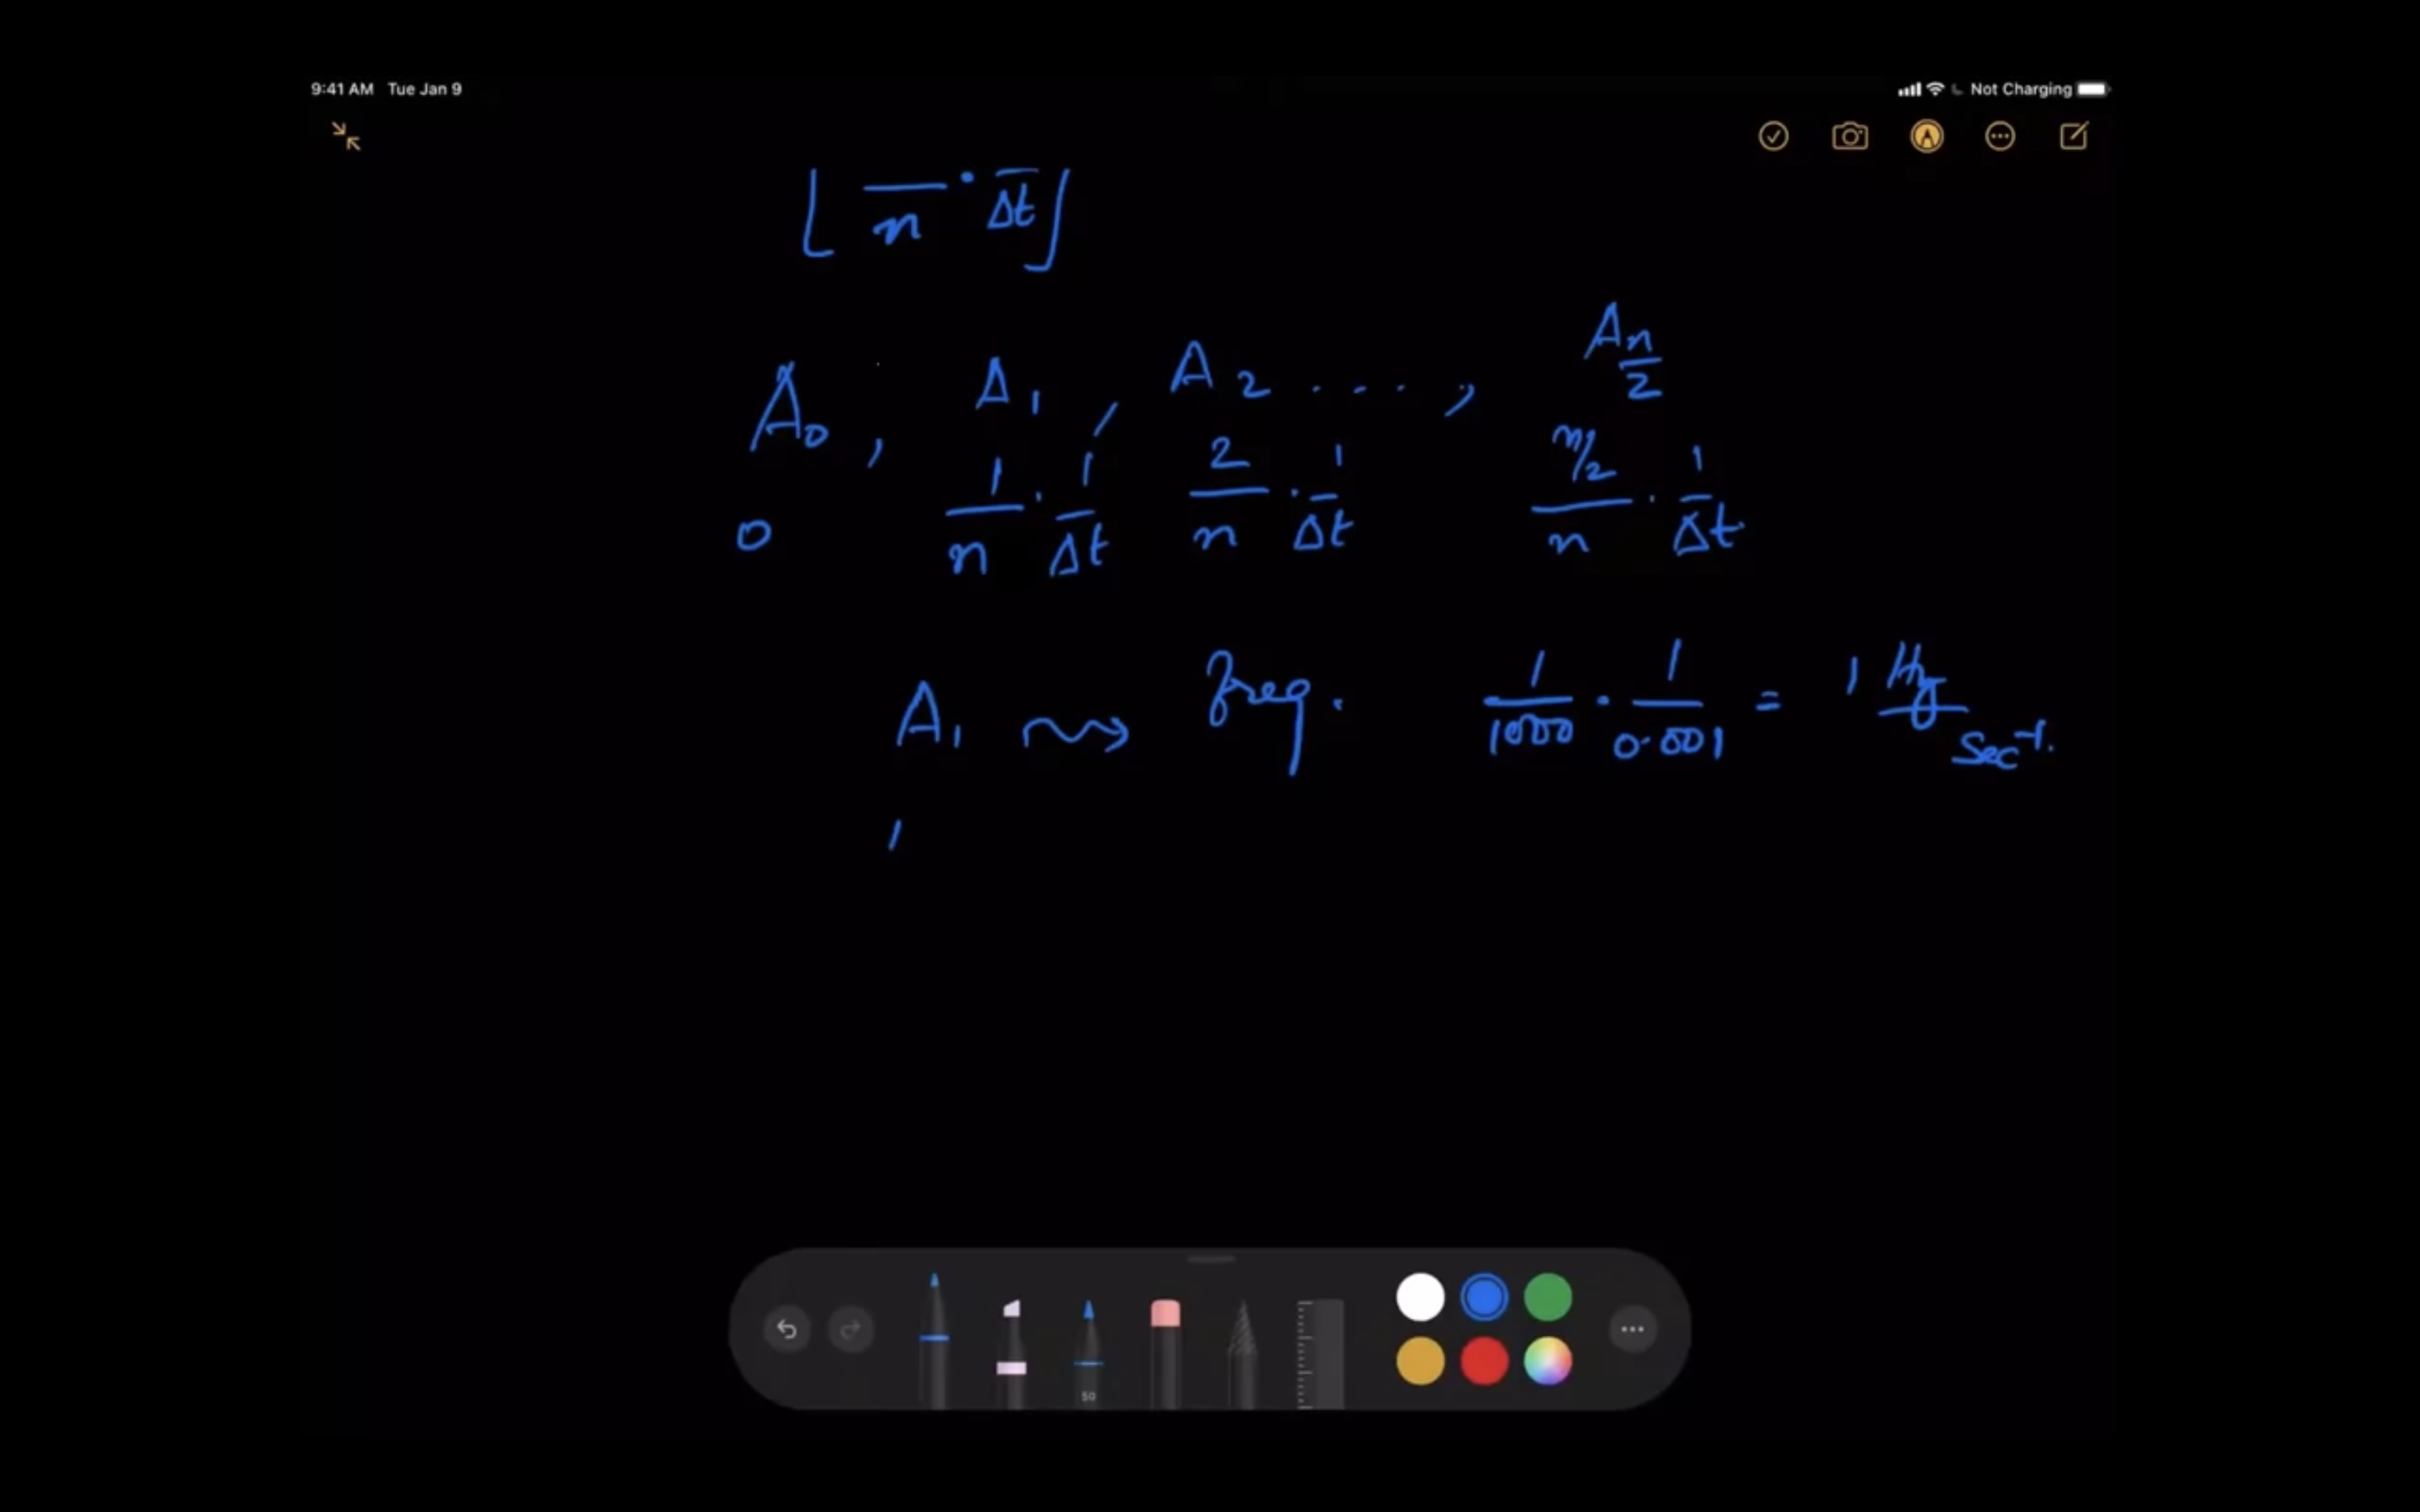 9:41 AM Tue Jan 9 Not Charging
⌊ —/n · —/Δt ⌋
A₀, A₁, A₂ ..., A n/2
0 1/n · 1/Δt 2/n · 1/Δt n/2/n · 1/Δt
A₁ ⇝ freq. 1/1000 · 1/0.001 = 1 Hz sec⁻¹.
50